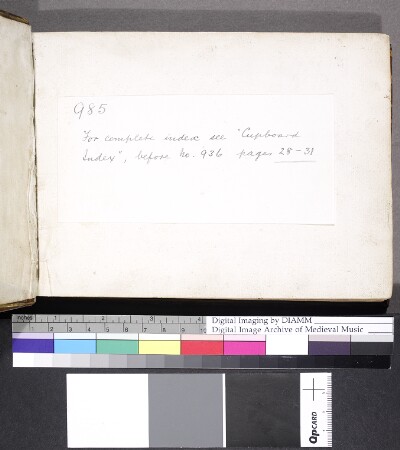 985
For complete index see "Cupboard
Index", before No. 936 pages 28-31
inches 1 2 3 4
1 2 3 4 5 6 7 8 9 10
Digital Imaging by DIAMM
Digital Image Archive of Medieval Music
QPCARD